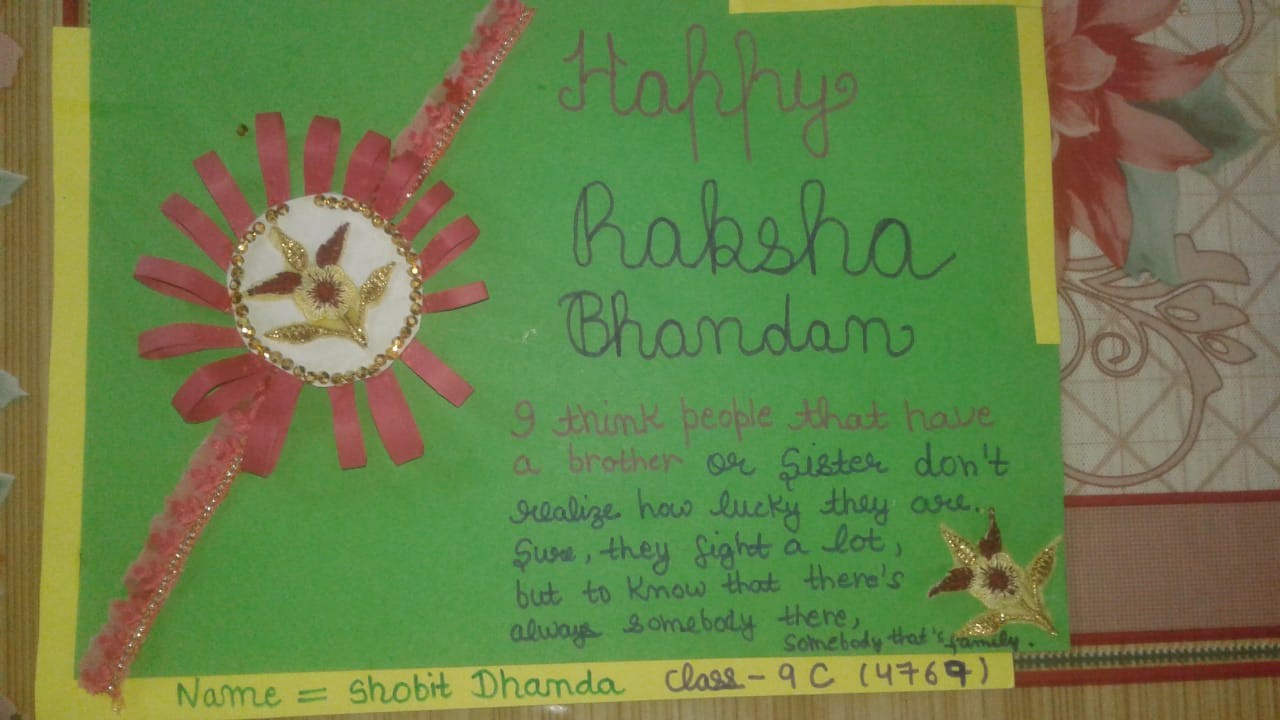 Happy
Raksha
Bhandan
I think people that have
a brother or Sister don't
realize how lucky they are.
Sure, they fight a lot,
but to know that there's
always somebody there,
somebody that's family.
Name = Shobit Dhanda Class - 9 C (4767)